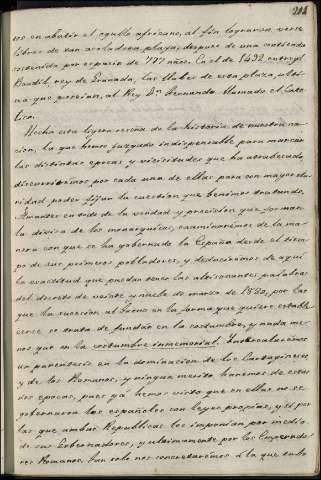 201
ros en abatir el orgullo africano, al fin lograron verse
libres de tan asoladora plaga, despues de una contienda
sostenida por espacio de 777 años. En el de 1492 entregó
Boabdil, rey de Granada, las llaves de esta plaza, ulti-
ma que poseian, al Rey Dn. Fernando llamado el Cató-
lico.
Hecha esta ligera reseña de la historia de nuestra na-
cion, la que hemos juzgado indispensable para marcar
las distintas epocas y vicisitudes que ha atravesado,
discurriremos por cada una de ellas para con mayor cla-
ridad poder fijar la cuestion que venimos tratando.
Amantes cual de la verdad y precision que for man
la divisa de los monarquicos, examinaremos de la ma-
nera con que se ha gobernado la España desde el tiem-
po de sus primeros pobladores, y deduciremos de aqui
la exactitud que puedan tener las altisonantes palabras
del decreto de veinte y nueve de marzo de 1830, por las
que la sucesion al trono en la forma que quiere estable-
cerse se trata de fundar en la costumbre, y nada me-
nos que en la costumbre inmemorial. Intercalaremos
un parentesis en la dominacion de los Cartagineses
y de los Romanos, y ningun merito haremos de estas
dos epocas, pues ya hemos visto que en ellas no se
gobernaron los españoles con leyes propias, y sí por
las que ambas Republicas les imponian por medio
de sus Gobernadores, y ultimamente por los Emperado-
res Romanos. Tan solo nos concretaremos á la que tuvo